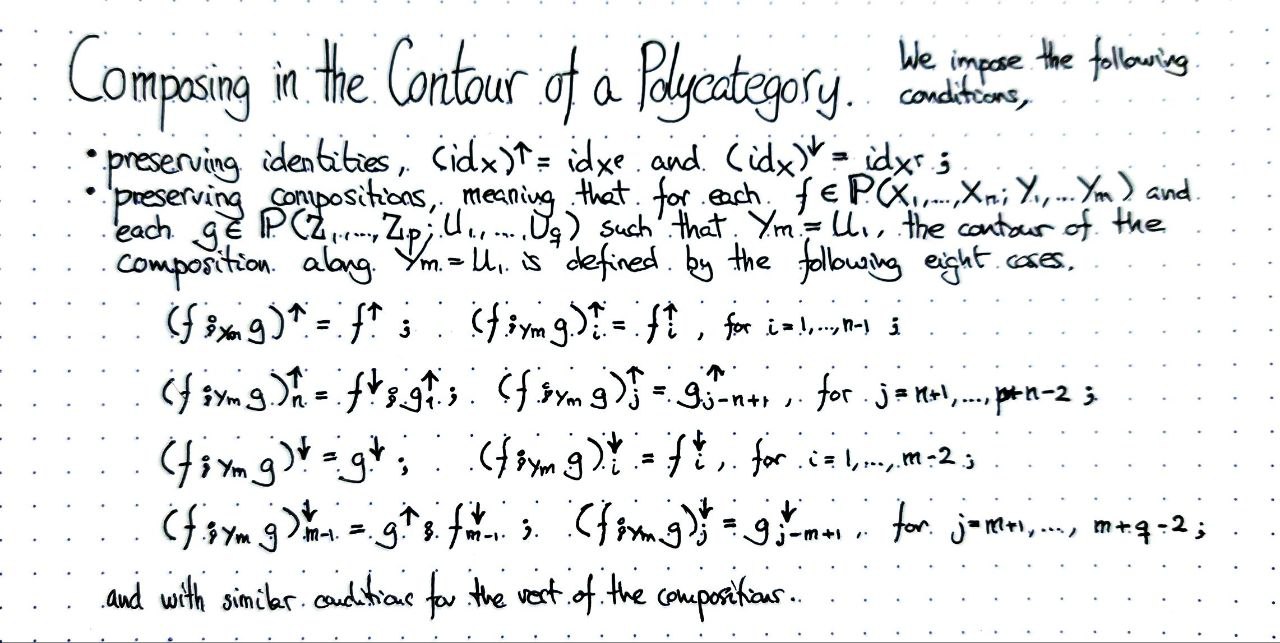 Composing in the Contour of a Polycategory.
We impose the following
conditions,
• preserving identities, (id_X)^↑ = id_{X^e} and (id_X)^↓ = id_{X^r} ;
• preserving compositions, meaning that for each f ∈ ℙ(X_1,...,X_n; Y_1,...Y_m) and
each g ∈ ℙ(Z_1,...,Z_p; U_1,...,U_q) such that Y_m = U_1, the contour of the
composition along Y_m = U_1 is defined by the following eight cases.
(f ⨟_{Xm} g)^↑ = f^↑ ; (f ⨟_{Ym} g)^↑_i = f^↑_i , for i = 1,...,n-1 ;
(f ⨟_{Ym} g)^↑_n = f^↓ ⨟ g^↑_1 ; (f ⨟_{Ym} g)^↑_j = g^↑_{j-n+1} , for j = n+1,...,p+n-2 ;
(f ⨟_{Ym} g)^↓ = g^↓ ; (f ⨟_{Ym} g)^↓_i = f^↓_i , for i = 1,...,m-2 ;
(f ⨟_{Ym} g)^↓_{m-1} = g^↑ ⨟ f^↓_{m-1} ; (f ⨟_{Ym} g)^↓_j = g^↓_{j-m+1} , for j = m+1,..., m+q-2 ;
and with similar conditions for the rest of the compositions.